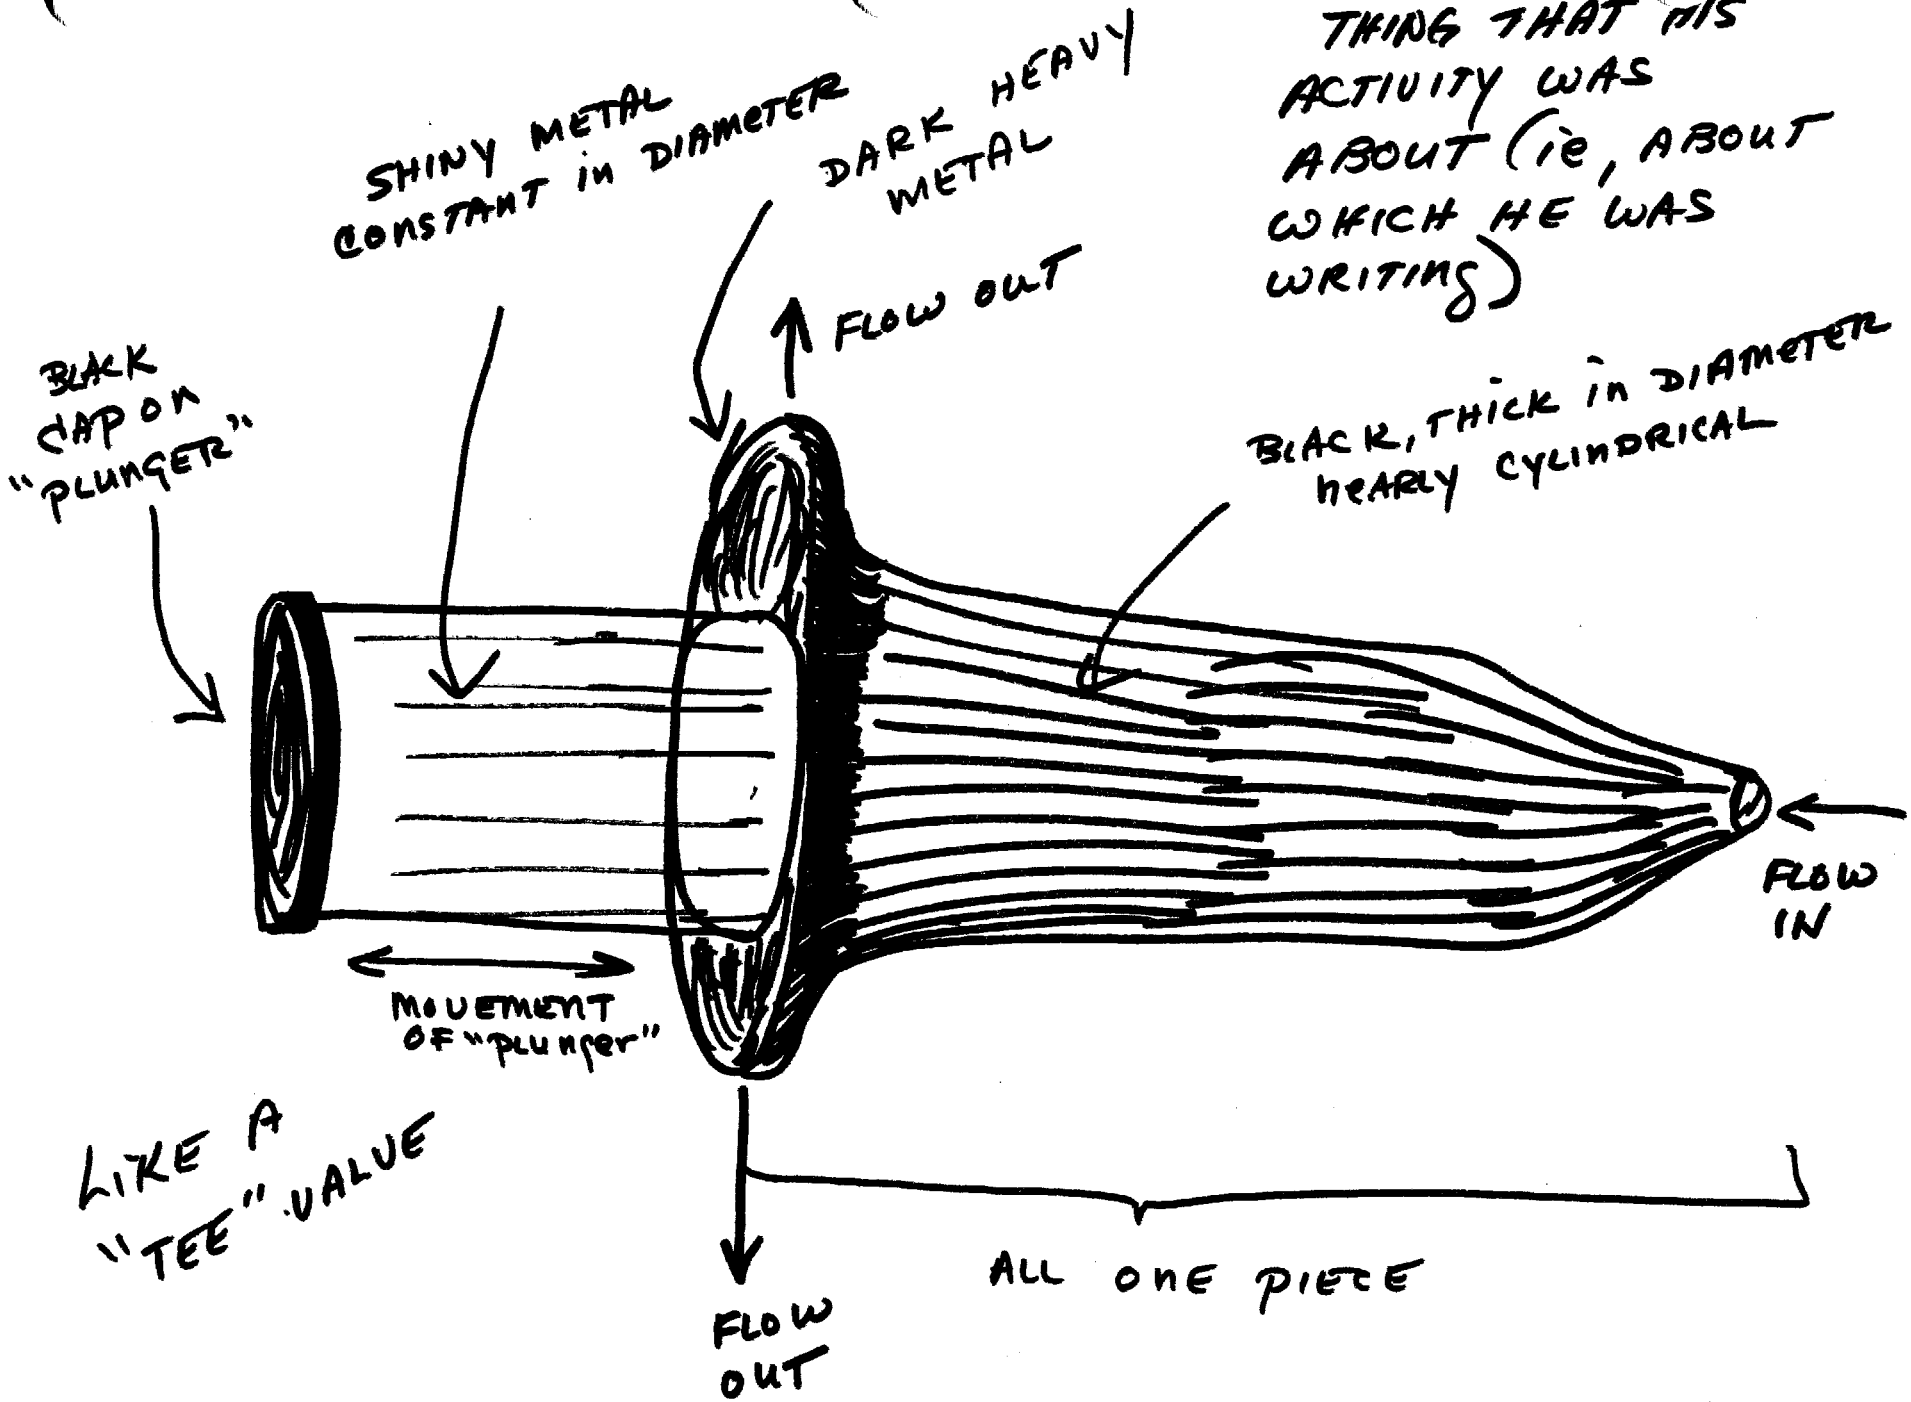 THING THAT HIS
ACTIVITY WAS
ABOUT (ie, ABOUT
WHICH HE WAS
WRITING)
SHINY METAL
CONSTANT in DIAMETER
DARK HEAVY
METAL
FLOW OUT
BLACK
CAP On
"PLUNGER"
BLACK, THICK in DIAMETER
nEARLY CYLINDRICAL
FLOW
IN
MOVEMENT
OF "plunger"
LIKE A
"TEE" VALVE
ALL OnE PIECE
FLOW
OUT